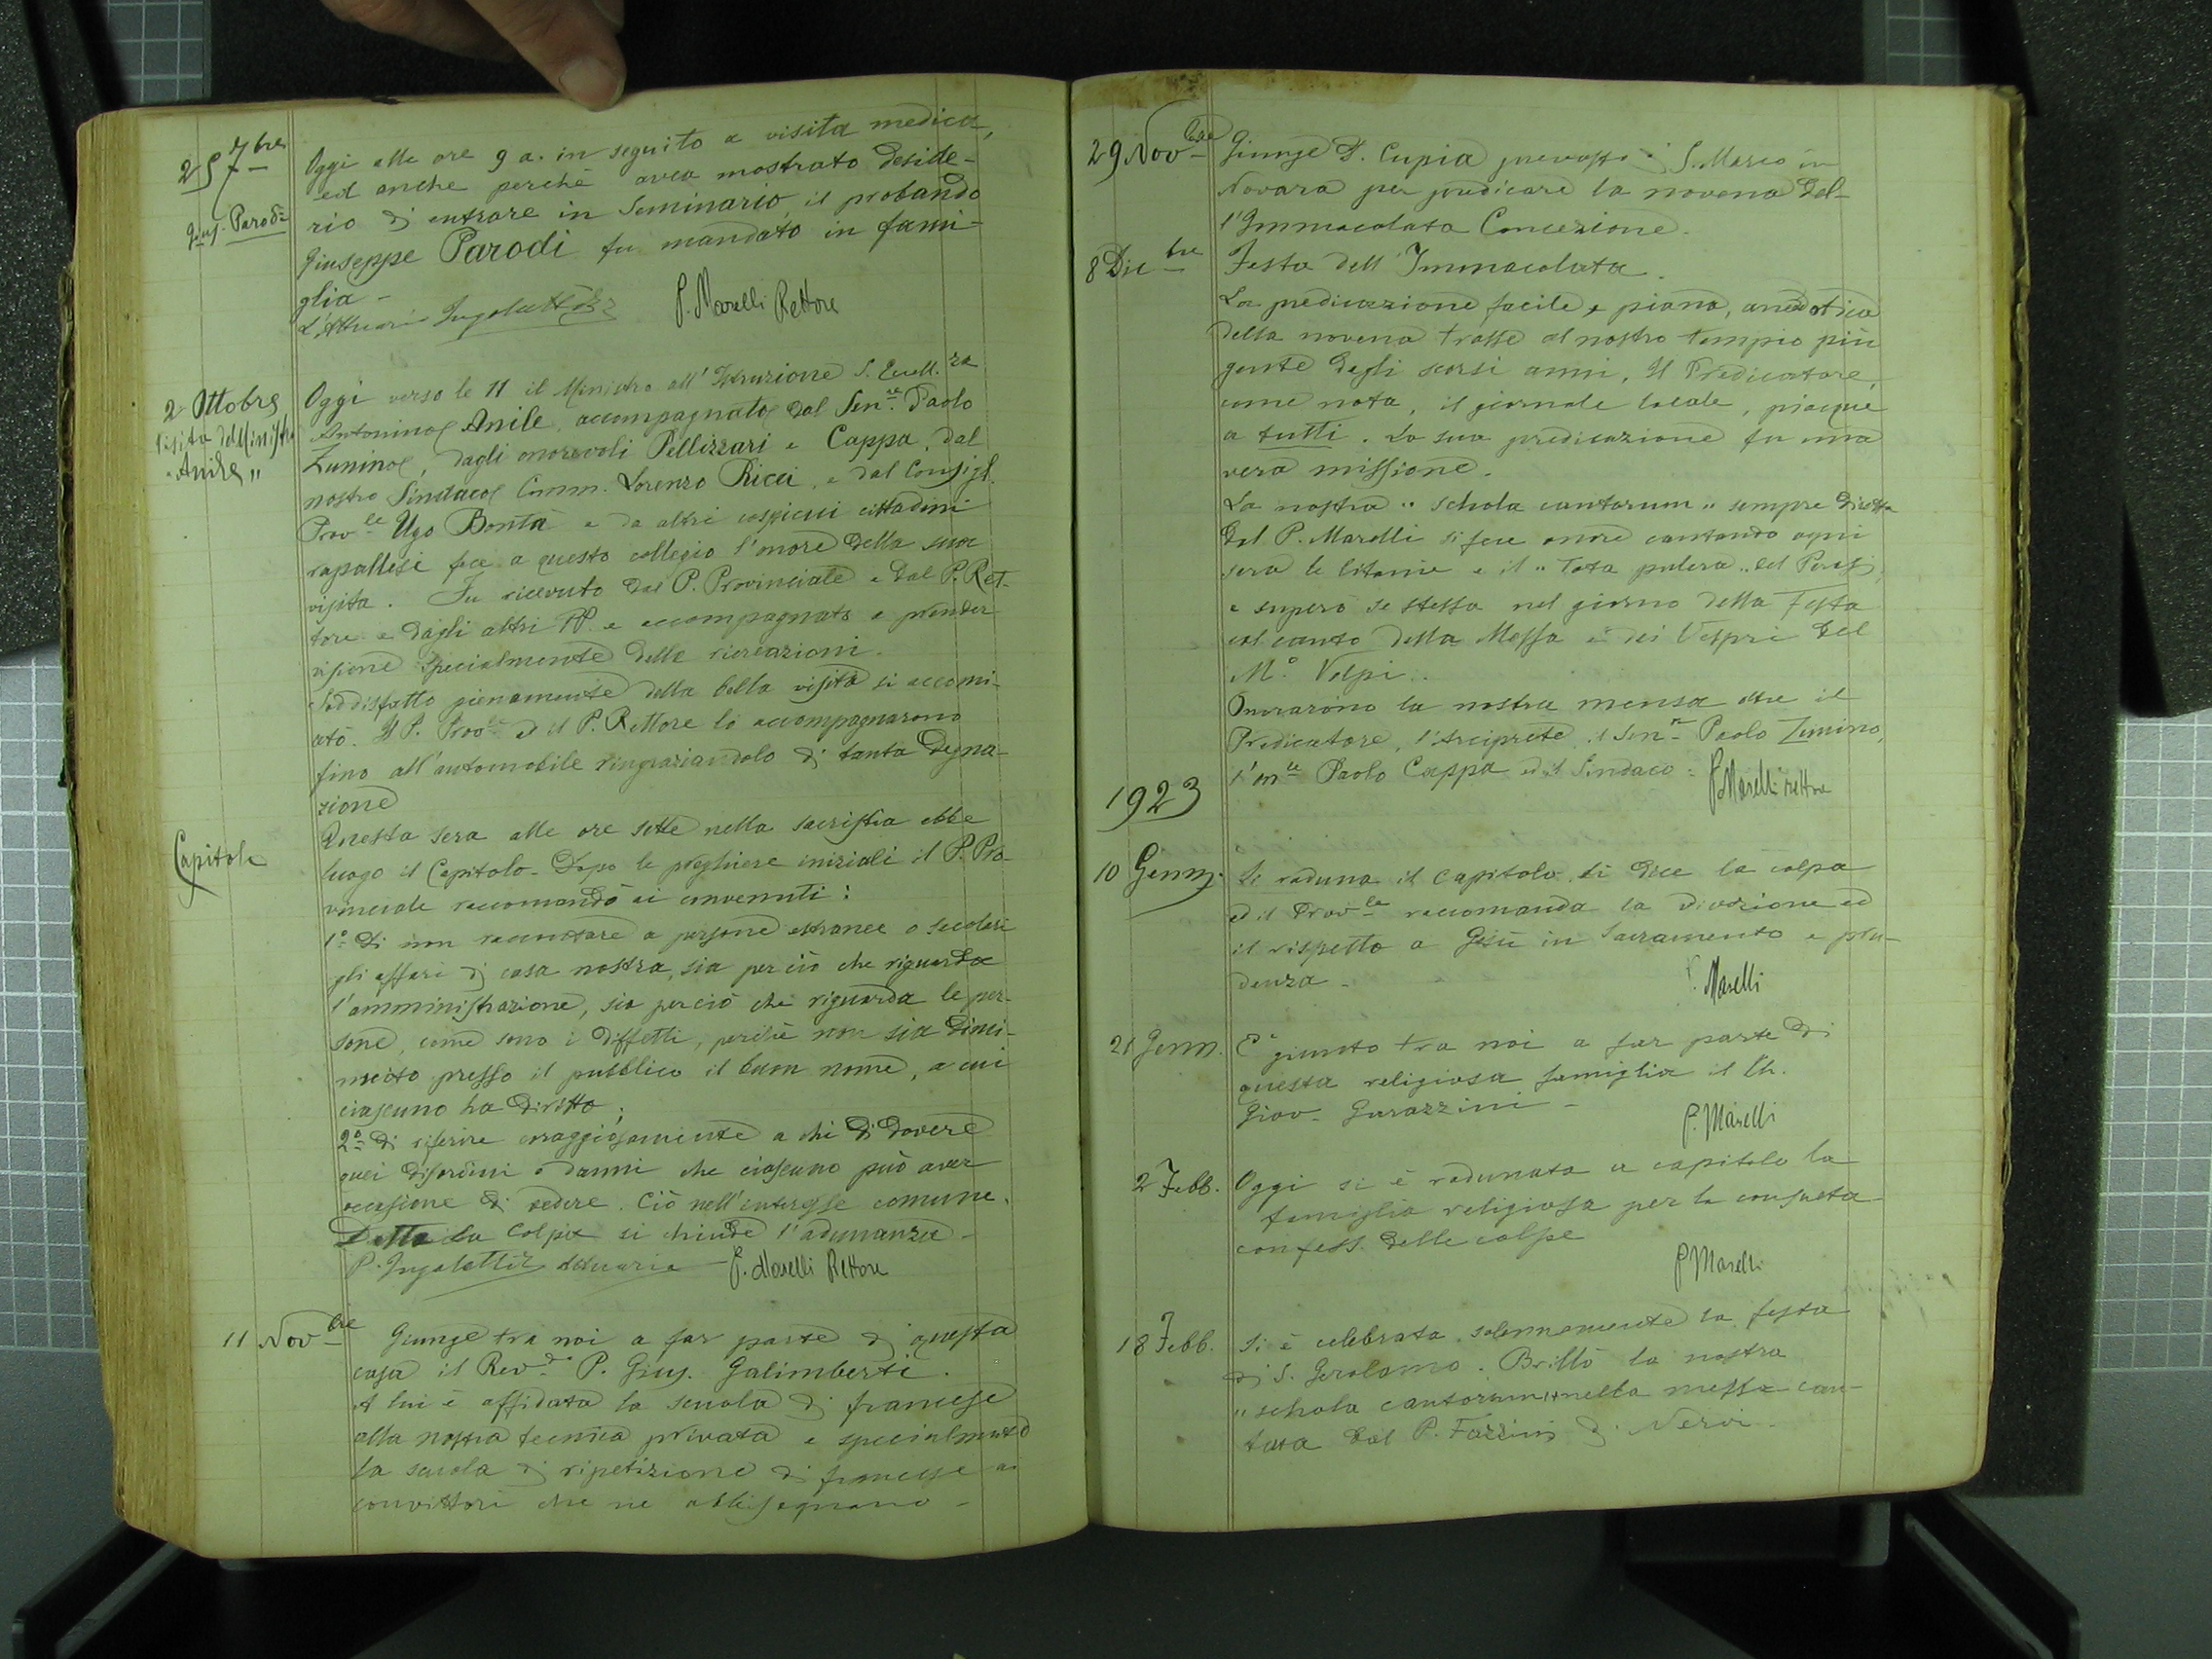 25 7bre
Gius. Parodi
Oggi alle ore 9 a. in seguito a visita medica,
ed anche perchè avea mostrato deside-
rio di entrare in Seminario, il probando
Giuseppe Parodi fu mandato in fami-
glia -
L'Attuario P. Marelli Rettore
2 Ottobre
Visita del Ministro
"Anile"
Oggi verso le 11 il Ministro all'Istruzione S. Ecell.za
Antonino Anile, accompagnato dal Sen.re Paolo
Zunino, dagli onorevoli Pellizzari e Cappa, dal
nostro Sindaco Comm. Lorenzo Ricci, e dal Consigl.
Prov.le Ugo Bontà e da altri cospicui cittadini
rapallesi fece a questo collegio l'onore della sua
visita. Fu ricevuto dal P. Provinciale e dal P. Ret-
tore e dagli altri PP. e accompagnato a prender
visione specialmente delle ricreazioni.
Soddisfatto pienamente della bella visita si accomi-
atò. Il P. Prov.le ed il P. Rettore lo accompagnarono
fino all'automobile ringraziandolo di tanta degna-
zione
Capitolo
Questa sera alle ore sette nella sacristia ebbe
luogo il Capitolo - Dopo le preghiere iniziali il P. Pro-
vinciale raccomandò ai convenuti:
1° Di non raccontare a persone estranee o secolari
gli affari di casa nostra, sia per ciò che riguarda
l'amministrazione, sia perciò che riguarda le per-
sone, come sono i diffetti, perchè non sia dimi-
nuito presso il pubblico il buon nome, a cui
ciascuno ha diritto;
2° Di riferire coraggiosamente a chi di dovere
quei disordini o danni che ciascuno può aver
occasione di vedere. Ciò nell'interesse comune.
Detta la Colpa si chiude l'adunanza -
P. Attuario P. Marelli Rettore
11 Nov.bre
Giunge tra noi a far parte di questa
casa il Rev.do P. Gius. Galimberti.
A lui è affidata la scuola di francese
alla nostra tecnica privata e specialmente
la scuola di ripetizione di francese ai
convittori che ne abbisognano -
29 Nov.bre
Giunge D. Cupia prevosto di S. Marco in
Novara per predicare la novena del-
l'Immacolata Concezione.
8 Dic.bre
Festa dell'Immacolata.
La predicazione facile e piana, anedotica
della novena trasse al nostro tempio più
gente degli scorsi anni. Il Predicatore,
come nota, il giornale locale, piacque
a tutti. La sua predicazione fu una
vera missione.
La nostra "schola cantorum" sempre diretta
dal P. Marelli si fece onore cantando ogni
sera le litanie e il "Tota pulcra" del Perosi,
e superò se stessa nel giorno della Festa
col canto della Messa e dei Vespri del
M° Volpi.
Onorarono la nostra mensa oltre il
Predicatore, l'Arciprete, il Sen.re Paolo Zunino,
l'on.le Paolo Cappa ed il Sindaco -
P. Marelli rettore
1923
10 Genn.
Si raduna il capitolo si dice la colpa
ed il Prov.le raccomanda la divozione ed
il rispetto a Gesù in Sacramento e pru-
denza -
P. Marelli
21 Genn.
È giunto tra noi a far parte di
questa religiosa famiglia il Ch.
Giov. Garazzini -
P. Marelli
2 Febb.
Oggi si è radunata a capitolo la
famiglia religiosa per la consueta
confess. delle colpe
P. Marelli
18 Febb.
Si è celebrata solennemente la festa
di S. Gerolamo. Brillò la nostra
"schola cantorum" nella messa can-
tata dal P. Fazzini di Nervi.